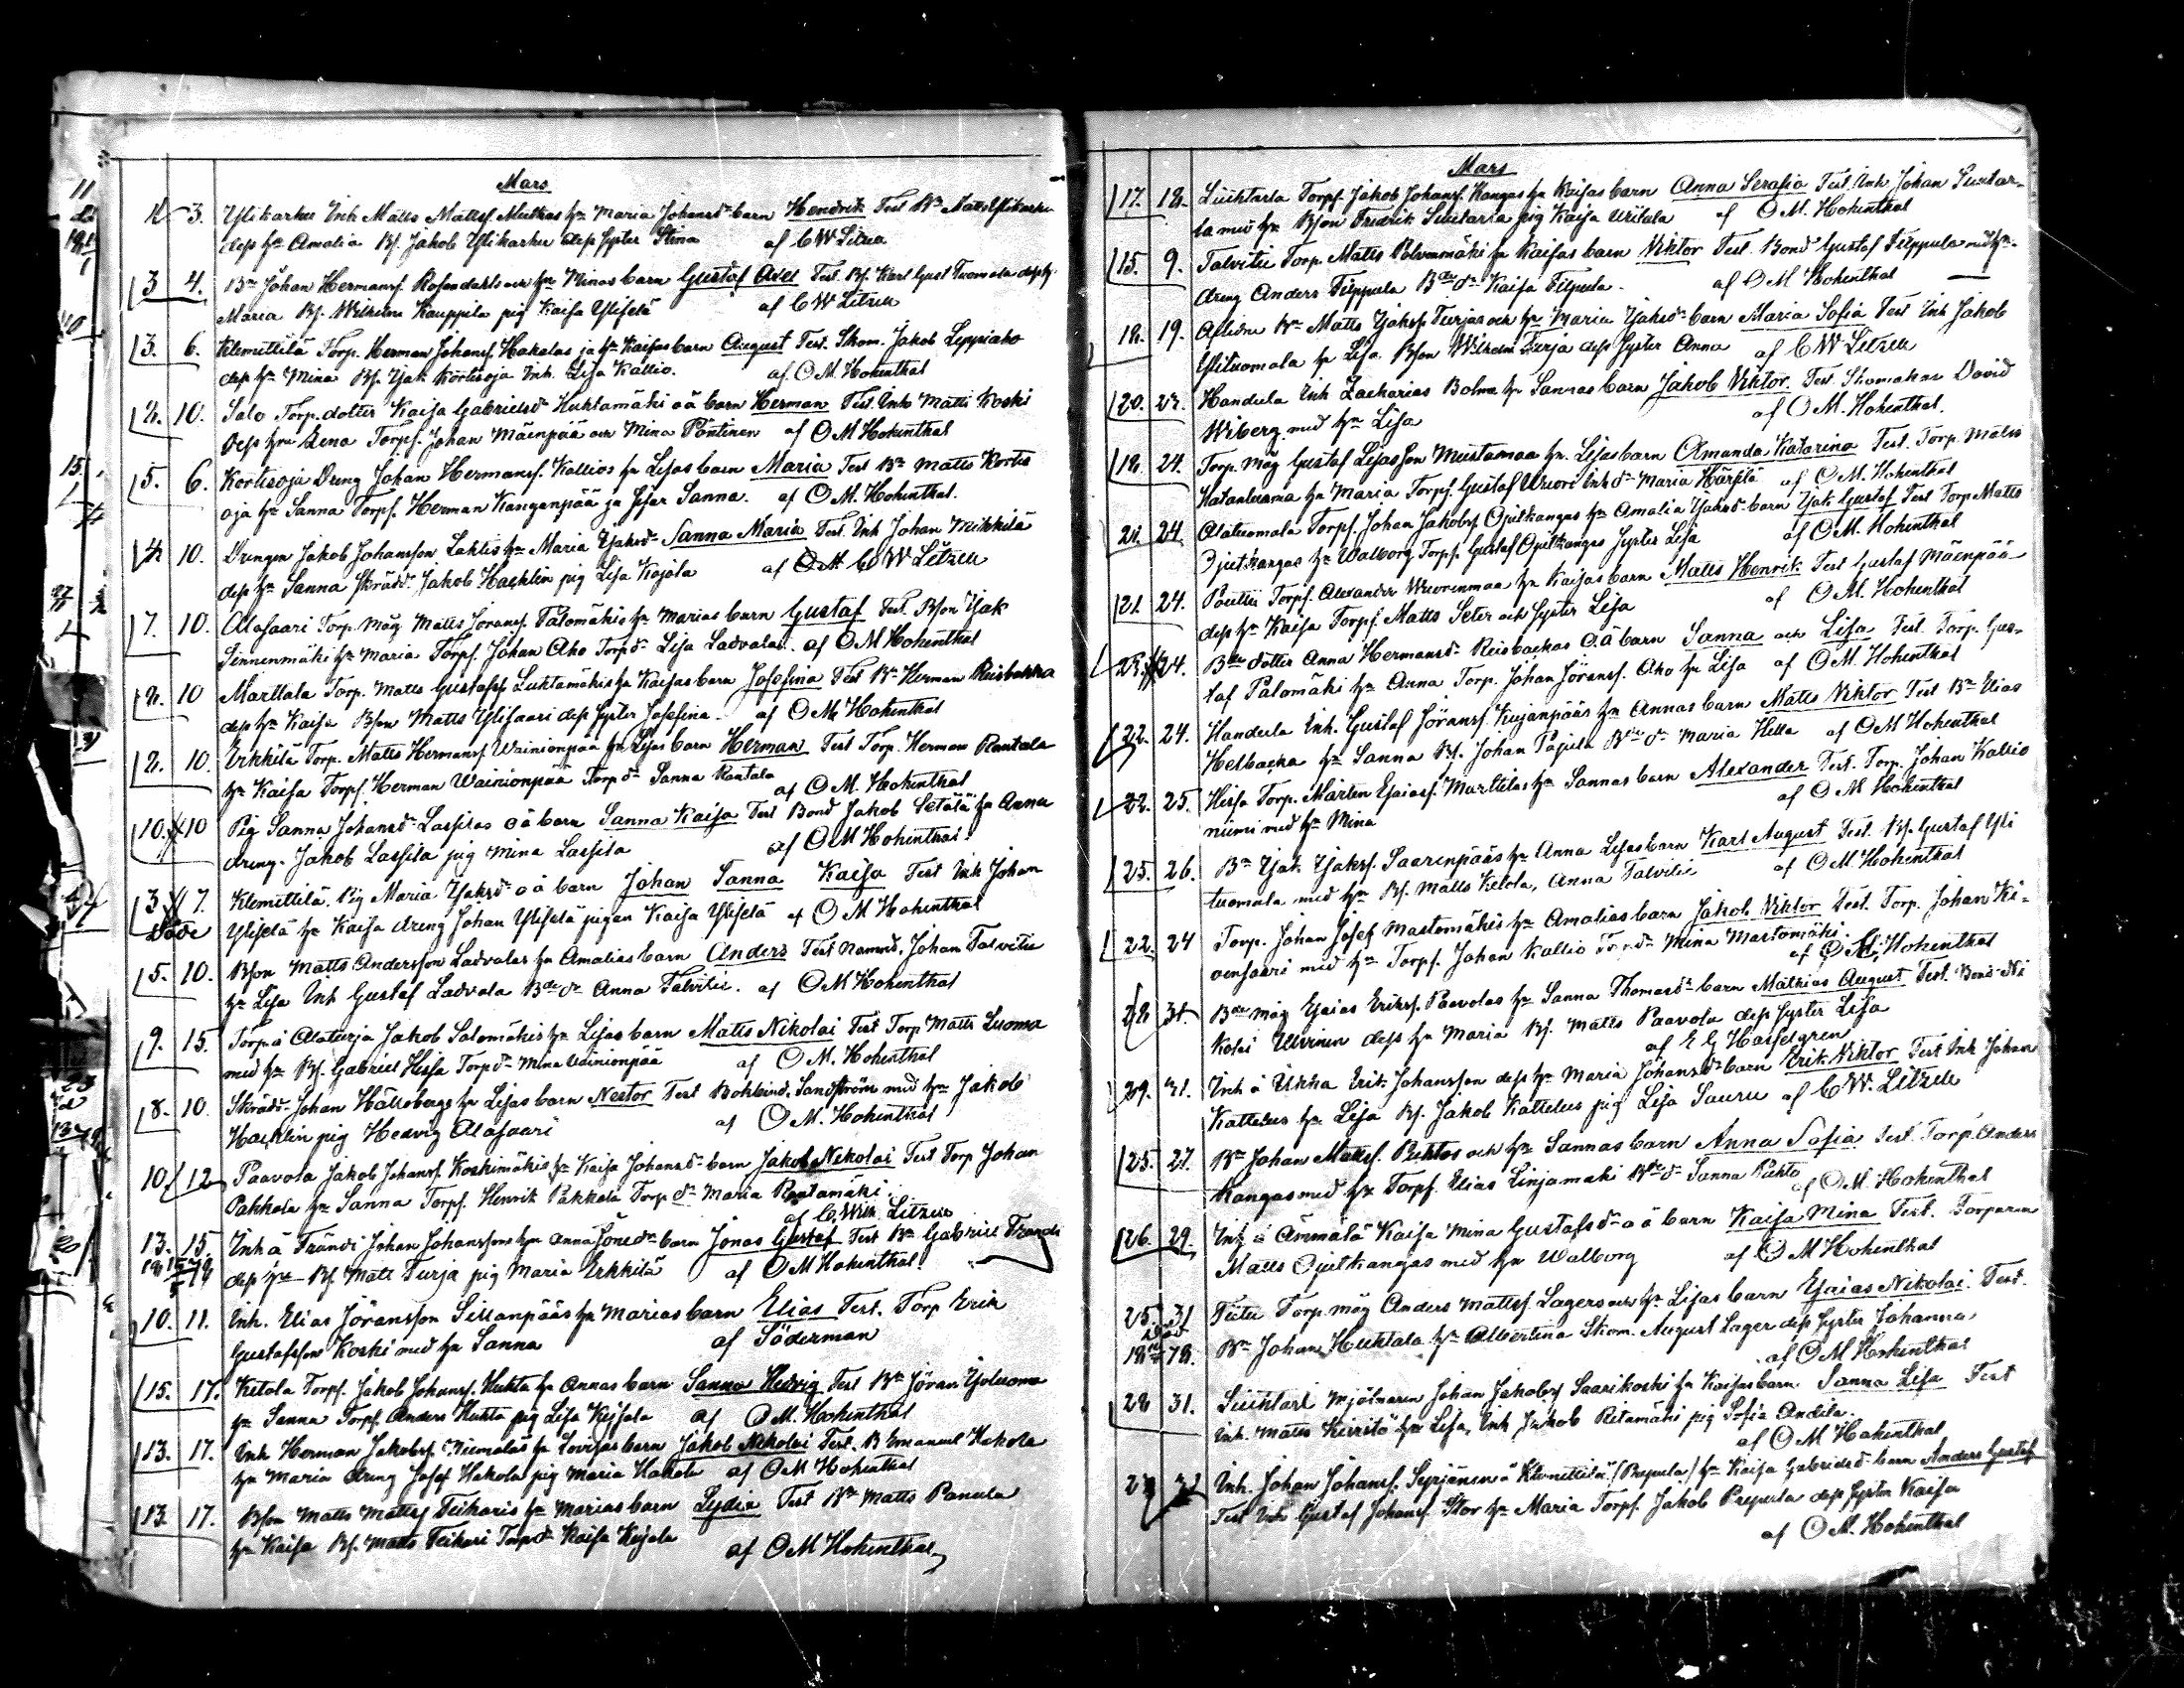 Mars
2 3. Ylikarhu Inh Matts Mattss. hu Maria Johansd. barn Hendrik Test Bn Matts Ylikarhu
dess hu Amalia Bs. Jakob Ylikarhu dess syster Stina af C W Litzen
3 4. Bn Johan Hermanss. Rosendahls och hu Minas barn Gustaf Axel Test. Bs. Karl Gust Tuomala dess hu
Maria Bs. Wilhelm Kauppila pig Kaisa Yliselä af C W Litzen
3. 6. Klemettilä Torp. Herman Johanss. Hakalas ja hu Kaisas barn August Test. Skom. Jakob Leppiaho
dess hu Mina Bs. Isak Kortisoja Inh. Lisa Kallio. af O M. Hohenthal
2. 10. Salo Torp. dotter Kaisa Gabrielsd. Huhtamäki oä barn Herman Test Inh Matts Koski
dess hu Lena Torps. Johan Mäenpää och Mina Pöntinen af O M Hohenthal
5. 6. Kortisoja Dreng Johan Hermanss. Kallios hu Lisas barn Maria Test Bn Matts Kortis
oja hu Sanna Torps. Herman Kanganpää ja syster Sanna. af O M. Hohenthal.
4 10. Drengen Jakob Johansson Lahtis hu Maria Isaksd. Sanna Maria Test. Inh Johan Mikkilä
dess hu Sanna Skrädd. Jakob Hacklin pig Lisa Kojola af C W Litzen
7. 10. Alasaari Torp. måg Matts Jöranss. Palomäkis hu Marias barn Gustaf Test. Bson Isak
Sinnenmäki hu Maria Torps. Johan Aho Torp d. Lisa Ladvala. af O M Hohenthal
2. 10 Marttala Torp. Matts Gustafss Luhtamäkis hu Kaisas barn Josefina Test Bn Herman Reisbacka
dess hu Kaisa Bson Matts Ylisaari dess syster Josefina. af O M Hohenthal
2. 10. Erkkilä Torp. Matts Hermanss. Wainionpää hu Lisas barn Herman Test Torp. Herman Rantala
hu Kaisa Torps. Herman Wainionpää Torp d. Sanna Rantala af O M. Hohenthal
10. 10 Pig Sanna Johansd. Lassilas oä barn Sanna Kaisa Test Bond Jakob Setälä hu Anna
dreng. Jakob Lassila pig Mina Lassila af O M Hohenthal.
3 7. Klemettilä. Pig Maria Isaksd. oä barn Johan Sanna Kaisa Test Inh Johan
Döde Yliselä hu Kaisa dreng Johan Yliselä pigan Kaisa Yliselä af O M Hohenthal
5. 10. Bson Matts Andersson Ladvalas hu Amalias barn Anders Test nämnd. Johan Talvitie
hu Lisa Inh Gustaf Ladvala Bde dr Anna Talvitie. af O M Hohenthal
9. 15. Torp. å Alaturja Jakob Salomäkis hu Lisas barn Matts Nikolai Test Torp Matts Luoma
med hu Bs. Gabriel Hissa Torp d. Mina Wainionpää af O M. Hohenthal
8. 10. Skrädd. Johan Hällsbergs hu Lisas barn Nestor Test Bokbind. Sandström med hu Jakob
Hacklin pig Hedvig Alasaari af O M. Hohenthal
10 12 Paavola Jakob Johanss. Koskimäkis hu Kaisa Johansd. barn Jakob Nikolai Test Torp Johan
Pakkala hu Sanna Torps. Henrik Pakkala Torp. d. Maria Rantamäki. af C. Wilh Litzen
13. 15. Inh å Frändi Johan Johanssons hu Anna Jönsdr barn Jonas Gustaf Test Bn Gabriel Frändi
dess hu Bs. Matts Turja pig Maria Erkkilä af O M Hohenthal.
10. 11. Inh. Elias Jöransson Sillanpääs hu Marias barn Elias Test. Torp Erik
Gustafsson Koski med hu Sanna af Söderman
15. 17. Ketola Torps. Jakob Johanss. Huhta hu Annas barn Sanna Hedvig Test Bn Jöran Yliluoma
hu Sanna Torps. Anders Huhta pig Lisa Keisala af O M. Hohenthal
13. 17. Inh. Herman Jakobss. Niemeläs hu Lovisas barn Jakob Nikolai Test. B Emanuel Hakola
hu Maria dreng Josef Hakola pig Maria Hakola af O M Hohenthal
13. 17. Bson Matts Mattss Teikaris hu Marias barn Lydia Test Bn Matts Panula
hu Kaisa Bs. Matts Teikari Torp d. Kaisa Kojola af O M Hohenthal
Mars
17. 18. Luihtarla Torps. Jakob Johanss. Kangas hu Kaisas barn Anna Serafia Test. Inh. Johan Luxtar-
la med hu Bson Fredrik Luxtarla pig Kaisa af O M. Hohenthal
15. 9. Talvitie Torp. Matts Polvenmäki hu Kaisas barn Viktor Test. Bond Gustaf Filppula med hu
dreng Anders Filppula Bde dr Kaisa Filpula. af O M Hohenthal
18. 19. Aflidne Bn Matts Isakss. Turjas och hu Maria Isaksd. barn Maria Sofia Test Inh Jakob
Ylituomala hu Lisa Bson Wilhelm Turja dess syster Anna af C W Litzen
20. 23. Handula Inh Zacharias Bolms hu Sannas barn Jakob Viktor. Test. Skomakar David
Wiberg med hu Lisa af O M. Hohenthal.
18. 24. Torp. måg Gustaf Lisasson Mustamaa hu Lisas barn Amanda Katarina Test. Torp. Matts
Katanluoma hu Maria Torps. Gustaf Inh d. Maria Härsilä af O M. Hohenthal
21. 24. Alatuomala Torps. Johan Jakobss. Ojutkangas hu Amalia Isaksd. barn Isak Gustaf Test Torp Matts
Ojutkangas hu Walborg Torps. Gustaf Ojutkangas syster Lisa af O M. Hohenthal
21. 24. Torps. Alexander Wuorenmaa hu Kaisas barn Matts Henrik Test Gustaf Mäenpää
dess hu Kaisa Torps Matts Seter och syster Lisa af O M. Hohenthal
23. 24. Bde dotter Anna Hermansd. Reisbackas oä barn Sanna och Lisa Test. Torp. Gus-
taf Palomäki hu Anna Torp. Johan Jöranss. Aho hu Lisa af O M. Hohenthal
22. 24. Handula Inh. Gustaf Jöranss. Kujanpääs hu Annas barn Matts Viktor Test Bn Elias
Helbacka hu Sanna Bs. Johan Pajula Bde dr Maria Hella af O M Hohenthal
22. 25. Hissa Torp. Martin Esaiass. Marttilas hu Sannas barn Alexander Test. Torp. Johan Kallio
niemi med hu Mina af O M Hohenthal
25. 26. Bn Isak Isakss. Saarenpääs hu Anna Lisas barn Karl August Test. Bs. Gustaf Yli
tuomala med hu Bs. Matts Ketola, Anna Talvitie af O M Hohenthal
22. 24 Torp. Johan Josef Mastomäkis hu Amalias barn Jakob Viktor Test. Torp. Johan Ki-
vensaari med hu Torps. Johan Kallio Torp d. Mina Mastomäki. af O M. Hohenthal
28 31. Bde måg Esaias Erikss. Paavolas hu Sanna Thomasd. barn Mathias August Test. Bond Ni
kolai Ulvinen dess hu Maria Bs. Matts Paavola dess syster Lisa af E G Hasselgren
29. 31. Inh å Ukka Erik Johansson dess hu Maria Johansd. barn Erik Viktor Test Inh Johan
Kattelus hu Lisa Bs. Jakob Kattelus pig Lisa Sauru af C W. Litzen
25. 27. Bn Johan Mattss. Puhtos och hu Sannas barn Anna Sofia Test. Torp. Anders
Kangas med hu Torps. Elias Linjamäki Bde d. Sanna Puhto af O M. Hohenthal
26. 29. Inh å Ämmälä Kaisa Mina Gustafsd. oä barn Kaisa Mina Test. Torparen
Matts Ojutkangas med hu Walborg af O M Hohenthal
25. 31 Torp. måg Anders Mattss. Lagers och hu Lisas barn Esaias Nikolai. Test.
Bn Johan Huhtala hu Albertina Skom. August Lager dess syster Johanna
af O M Hohenthal
28 31. Luihtari Mjölnaren Johan Jakobss Saarikoski hu Kaisas barn Sanna Lisa Test
Inh. Matts Keiristö hu Lisa, Inh Jakob Ritamäki pig Sofia Andila.
af O M Hohenthal
27 31 Inh. Johan Johanss. Syrjänen å Klemettilä (Prepula) hu Kaisa Gabrielsd. barn Anders Gustaf
Test Inh Gustaf Johanss. Stor hu Maria Torps. Jakob Prepula dess syster Kaisa
af O M. Hohenthal